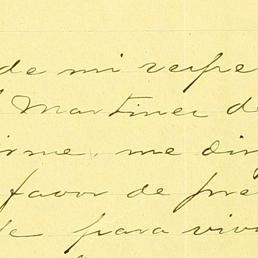 de mi respe
Martinez de
irme, me diri
favor de pre
para vivi